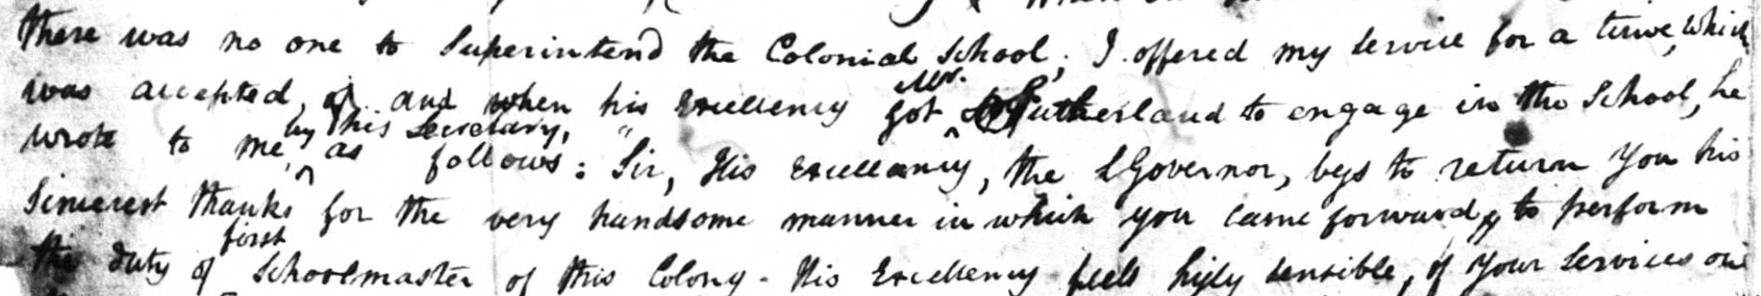 there was no one to Superintend the Colonial School; I offered my Service for a time, which
was accepted, and when his Excellency got Mr. Sutherland to engage in the School, he
wrote to me, by his Secretary, as follows: "Sir, His Excellancy, the LGovernor, begs to return You his
Sincerest thanks for the very handsome manner in which you came forward, to perform
the duty of first Schoolmaster of this Colony - His Excellency feels higly sensible, of Your Services on